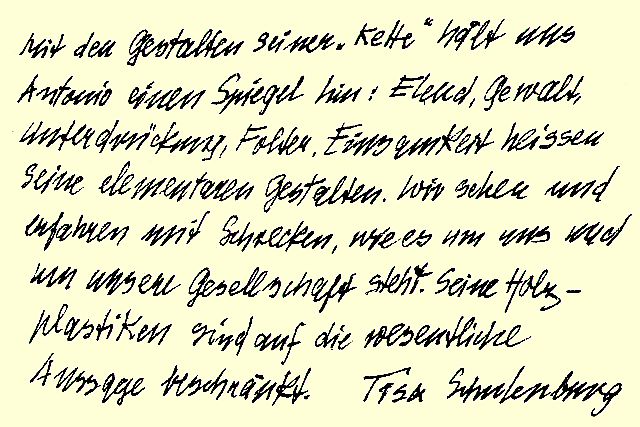 Mit den Gestalten seiner „Kette" hält uns
Antonio einen Spiegel hin: Elend, Gewalt,
Unterdrückung, Folter. Einsamkeit heissen
seine elementaren Gestalten. Wir sehen und
erfahren mit Schrecken, wie es um uns und
um unsere Gesellschaft steht. Seine Holz-
plastiken sind auf die wesentliche
Aussage beschränkt. Tisa Schulenburg